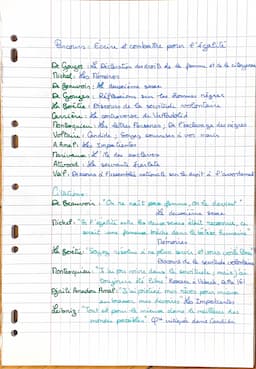 Parcours : Ecrire et combattre pour l'égalité
De Gouges : La Déclaration des droits de la femme et de la citoyenne
Michel : Les Mémoires
De Beauvoir : Le deuxième sexe
De Gouges : Réflexions sur les hommes nègres
La Boétie : Discours de la servitude volontaire
Carrière : La controverse de Valladolid
Montesquieu : Les lettres Persanes ; De l'esclavage des nègres
Voltaire : Candide ; Soyez soumises à vos maris
A. Amal : Les Impatientes
Marivaux : L'île des esclaves
Attwood : La servante écarlate
Veil : Discours à l'assemblée nationale sur le droit à l'avortement
Citations :
De Beauvoir : "On ne naît pas femme, on le devient"
Le deuxième sexe
Michel : "Si l'égalité entre les deux sexes était reconnue, ce
serait une fameuse brèche dans la bêtise humaine"
Mémoires
La Boétie : "Soyez résolus à ne plus servir, et vous voilà libres"
Discours de la servitude volontaire
Montesquieu : "J'ai pu vivre dans la servitude ; mais j'ai
toujours été libre"
Djaïli Amadou Amal :
Les Impatientes
Leibniz : "Tout est pour le mieux dans le meilleur des
mondes possibles" critiquée dans Candide